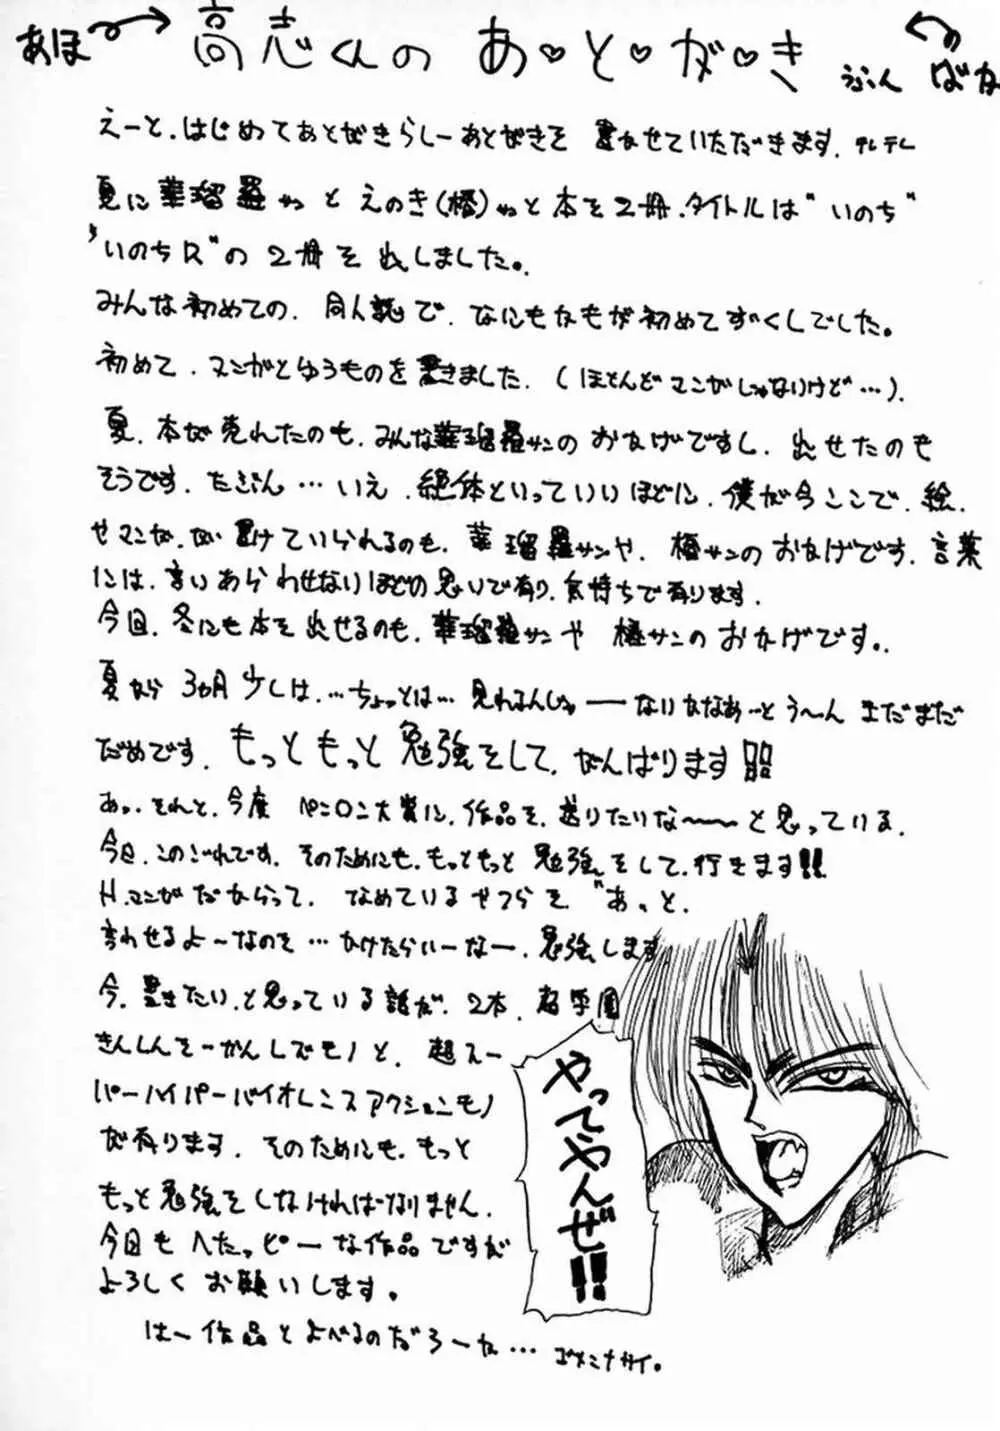 あほ
高志くんの あ・と・が・き
うぷん ばか
えーと、はじめてあとがきらしーあとがきを 書かせていただきます、テレテレ
夏に華瑠羅サンとえのき(榎)サンと本を2冊、タイトルは"いのち"
"いのちR"の2冊を出しました。
みんな初めての、同人誌で、なにもかもが初めてずくしでした。
初めて、マンガとゆうものを書きました、(ほとんどマンガじゃないけど…)、
夏、本が売れたのも、みんな華瑠羅サンのおかげですし、出せたのも
そうです、たぶん…いえ、絶体といっていいほどに、僕が今ここで、絵、
やマンガ、が書けていられるのも、華瑠羅サンや、榎サンのおかげです、言葉
には、言いあらわせないほどの思いで有り、気持ちで有ります、
今回、冬にも本を出せるのも、華瑠羅サンや榎サンのおかげです。、
夏から3ヵ月少しは、…ちょっとは…見れるんじゃーないかなあーとう〜んまだまだ
だめです、もっともっと勉強をして、がんばります!!
あっ、それと、今度ペンロン大賞に、作品を、送りたいな〜〜と思っている、
今日、このごれです、そのためにも、もっともっと勉強をして、行きます!!
H、マンガだからって、なめているやつらを"あっと、
言わせるよ〜なのを…かけたらいーなー、勉強します
今、書きたい、と思っている話が、2本、超学園
きんしんそーかんしでモノと、超スー
パーハイパーバイオレンスアクションモノ
が有ります、そのためにも、もっと
もっと勉強をしなければなりません、
今回もへたっピーな作品ですが
よろしくお願いします。
は〜作品とよべるのだろーか…ゴメンナサイ。
やってやんぜ!!